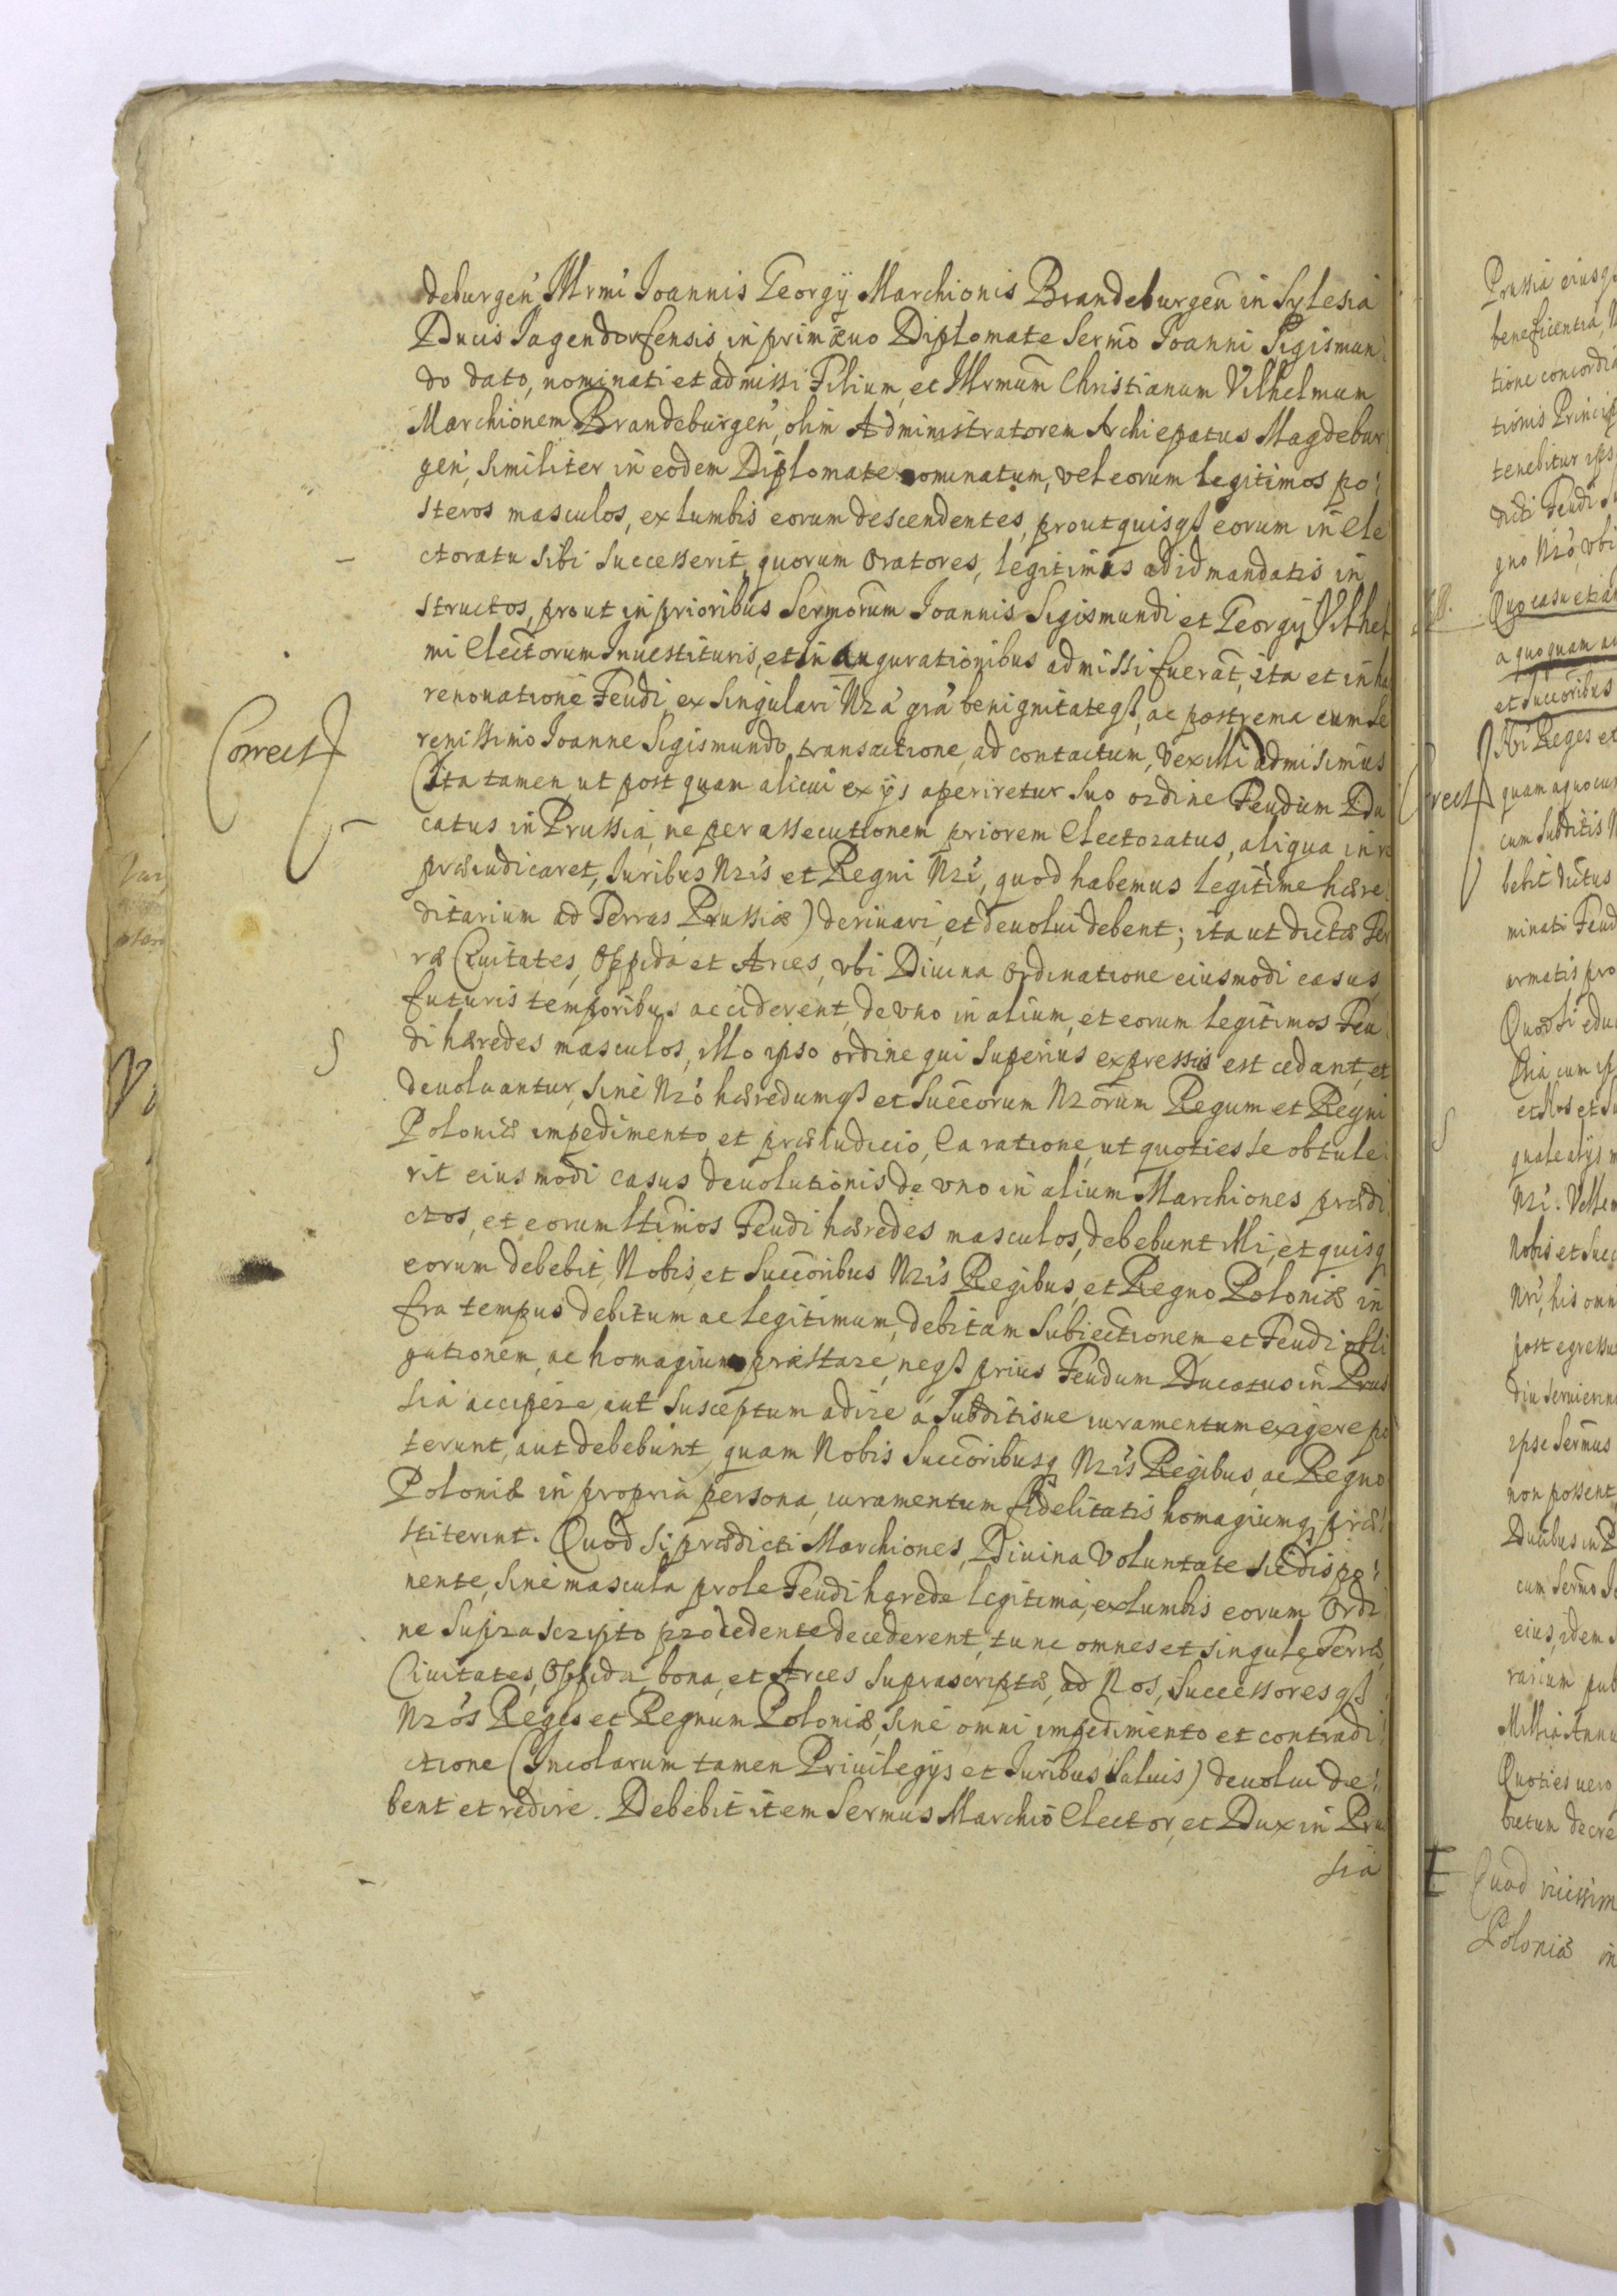 deburgen̄, Illrmi Joannis Georgÿ Marchionis Brandeburgen̄ in Sylesia
Ducis Jagendorfensis, in primæuo Diplomate Sermo Joanni Sigismun
do dato, nominati et admissi Filium, et Illrmum Christianum Vilhelmum
Marchionem Brandeburgen̄, olim Administratorem Archiepatus Magdebur
gen̄, similiter in eodem Diplomate nominatum, vel eorum legitimos po
steros masculos, ex lumbis eorum descendentes, prout quisqß eorum in Ele
ctoratu sibi successerit, quorum Oratores, legitimis ad id mandatis in
structos, prout in prioribus Sermorum Joannis Sigismundi et Georgÿ Vilhel
mi Electorum Inuestituris, et inaugurationibus admissi fuerāt, ita et in ha
renouatione Feudi, ex singulari Nrā grā benignitateqß, ac postrema cum Se
renissimo Joanne Sigismundo, transactione, ad contactum, vexilli admisimus
(Ita tamen, ut post quam alicui ex ijs aperiretur suo ordine Feudum Du
catus in Prussia, ne per assecutionem priorem Electoratus, aliqua in re
præiudicaret, Iuribus Nr̄is et Regni Nr̄i, quod habemus legitime hære
ditarium ad Terras Prussiæ) deriuari, et deuolui debent; ita ut dictæ Ter
ræ Ciuitates, Oppida et Arces, vbi Diuina ordinatione eiusmodi casus
futuris temporibus acciderent, de vno in alium, et eorum legitimos Feu
di hæredes masculos, illo ipso ordine qui superius expressus est cedant, et
deuoluantur, sine Nr̄o hæredumqß et Succorum Nr̄orum Regum et Regni
Poloniæ impedimento et præiudicio, Ea ratione, ut quoties se obtule
rit eiusmodi casus deuolutionis de vno in alium Marchiones prædi
ctos, et eorum ltimos Feudi hæredes masculos, debebunt illi, et quisq
eorum debebit, Nobis, et Succoribus Nr̄is Regibus, et Regno Poloniæ in
fra tempus debitum ac legitimum, debitam Subiectionem et Feudi obli
gationem, ac homagium præstare, neqß prius Feudum Ducatus in Prus
sia accipere, aut susceptum adire, á Subditisue iuramentum exigere po
terunt, aut debebunt, quam Nobis Succoribusq Nr̄is Regibus, ac Regno
Poloniæ in propria persona, iuramentum fidelitatis homagiumq præ
stiterint. Quod si prædicti Marchiones, Diuina Voluntate sic dispo
nente, sine mascula prole Feudi hęrede legitima, ex lumbis eorum ordi
ne supra scripto procedente decederent, tunc omnes et singulę Terræ,
Ciuitates, Oppida, bona, et Arces suprascriptæ, ad Nos, Successoresqß
Nr̄os Reges et Regnum Poloniæ, sine omni impedimento et contradi
ctione (Incolarum tamen Priuilegijs et Iuribus saluis) deuolui de
bent et redire. Debebit item Sermus Marchio Elector, et Dux in Prus
sia
Correct
Prussia eiusq
beneficentia, N
tione concordia
tionis Princip
tenebitur ips
dicti Feudi Su
gno Nr̄o, vbi
Quo casu etiam
a quoquam au
et succoribus
Reges et
rect
quam a quocun
cum Subditis N
bebit dictus
minati Feud
armatis pro
Quod si edu
cum
et Nos et Su
quale alijs
Nr̄i. Velle
Nobis et Succ
Nr̄i, his omn
post egressu
diu
ipse Sermus
non possent
Ducibus in P
cum Sermo Jo
eius, idem
pub
Annu
Quoties uero
butum decre
Quod vicissim
Poloniæ in